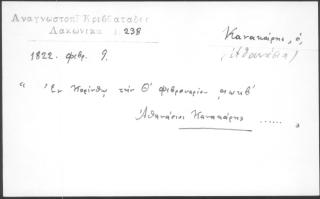 Αναγνωστοπ Κρεββατάδες
Λακωνικά 1. 238
Κανακάρης, ὁ,
(Ἀθανάσιος)
1822. φεβρ. 9.
" Ἐν Κορίνθῳ τὴν Θ' φεβρουαρίου αωκβ'
Ἀθανάσιος Κανακάρης ...... "